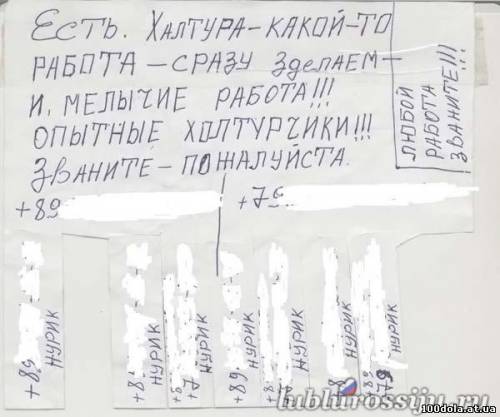 ЕСТЬ. ХАЛТУРА-КАКОЙ-ТО
РАБОТА-СРАЗУ ЗДЕЛАЕМ-
И, МЕЛЫЧИЕ РАБОТА!!!
ОПЫТНЫЕ ХОЛТУРЧИКИ!!!
ЗВАНИТЕ-ПОЖАЛУЙСТА.
ЛЮБОЙ
РАБОТА
ЗВАНИТЕ!!!
+89
+79
+89
НУРИК
+8
НУРИК
+8
+7
НУРИК
+89
НУРИК
+8
НУРИК
НУРИК
+89
+79
НУРИК
lublurossiju.ru
100dola.at.ua